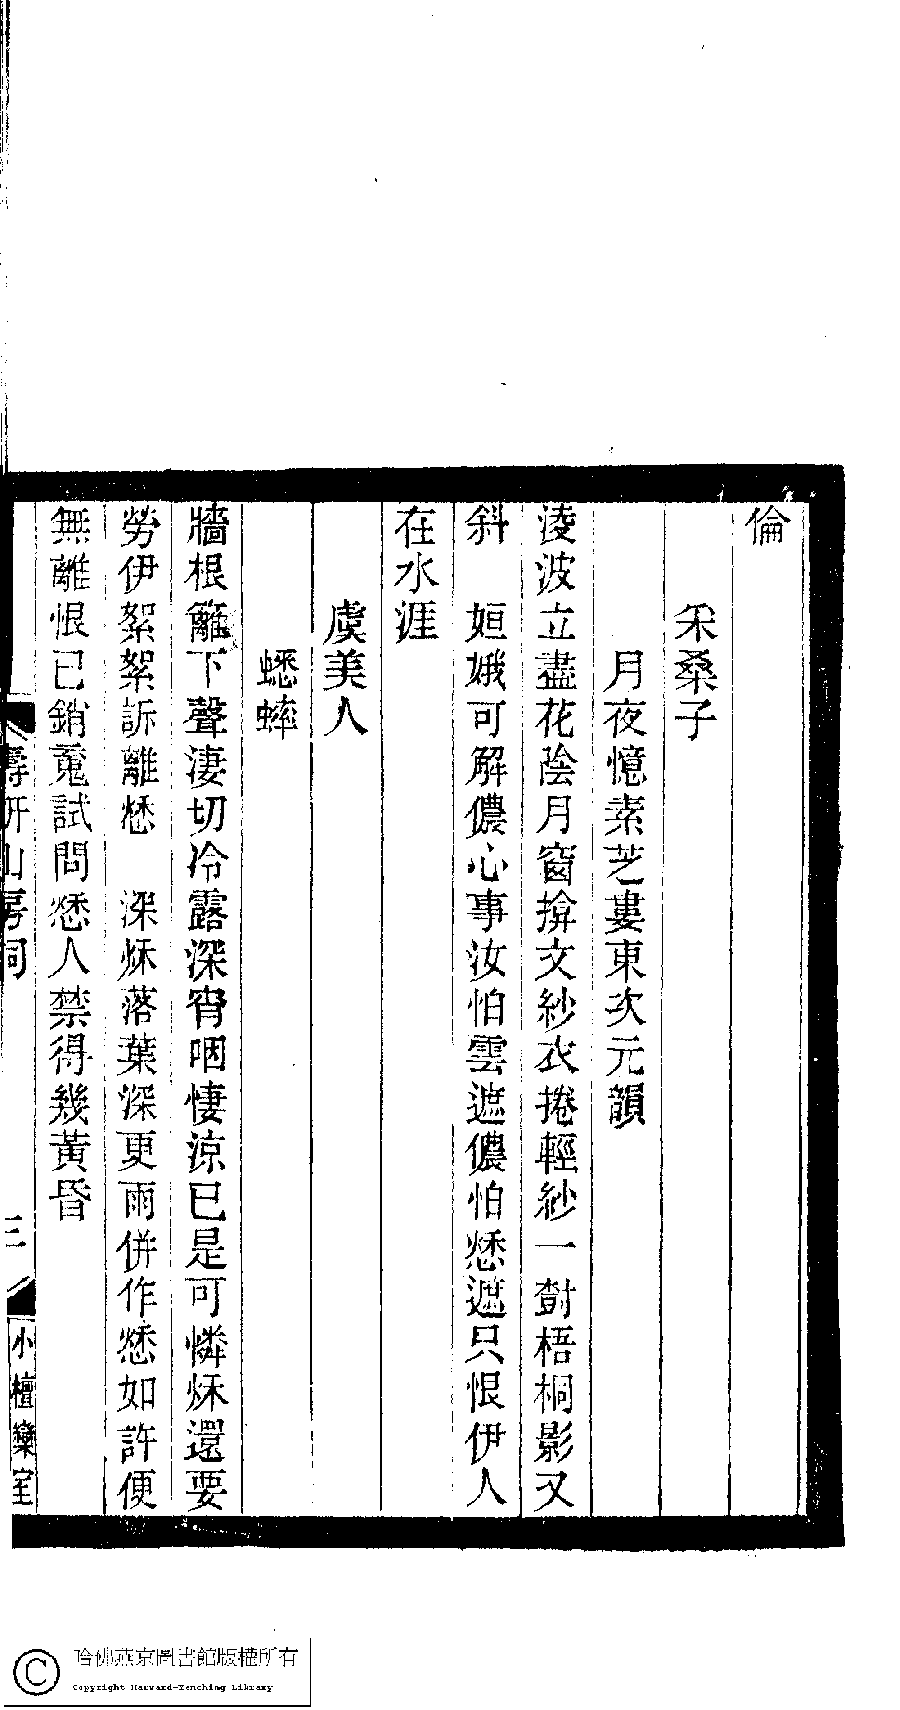 倫
采桑子
月夜憶素芝婁東次元韻
淩波立盡花陰月窗揜文紗衣捲輕紗一尌梧桐影又
斜　姮娥可解儂心事汝怕雲遮儂怕愁遮只恨伊人
在水涯
虞美人
蟋蟀
牆根籬下聲淒切冷露深宵咽悽涼已是可憐秌還要
勞伊絮絮訴離愁　深秌落葉深更雨併作愁如許便
無離恨已銷䰟試問愁人禁得幾黃昏
壽研山房詞
三
小檀欒室
哈佛燕京圖書館版權所有
Copyright Harvard-Yenching Library